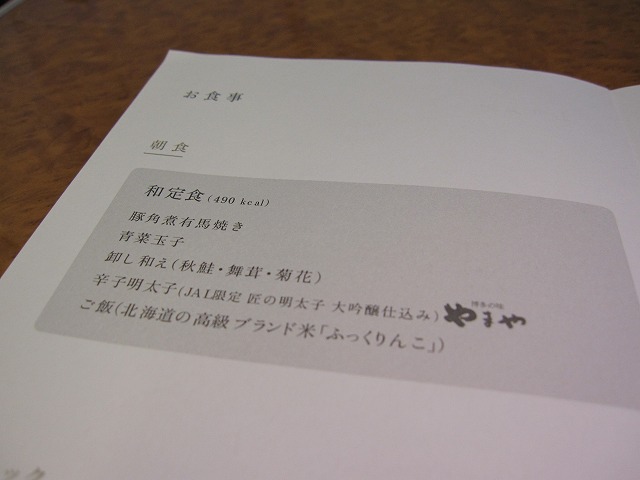 お食事
朝食
和定食(490 kcal)
豚角煮有馬焼き
青菜玉子
卸し和え(秋鮭・舞茸・菊花)
辛子明太子(JAL限定 匠の明太子 大吟醸仕込み) 博多の味 やまや
ご飯(北海道の高級ブランド米「ふっくりんこ」)
ック